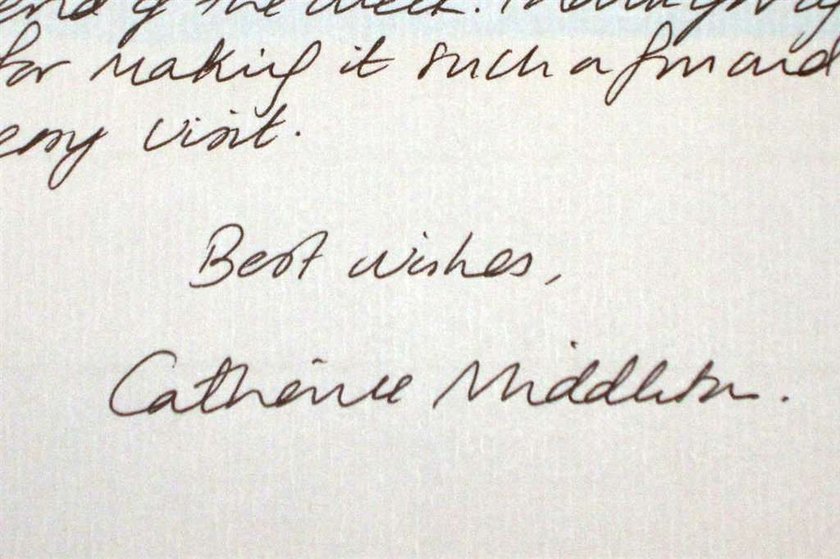 end of the week. Thank you
for making it such a fun and
easy visit.
Best wishes,
Catherine Middleton.